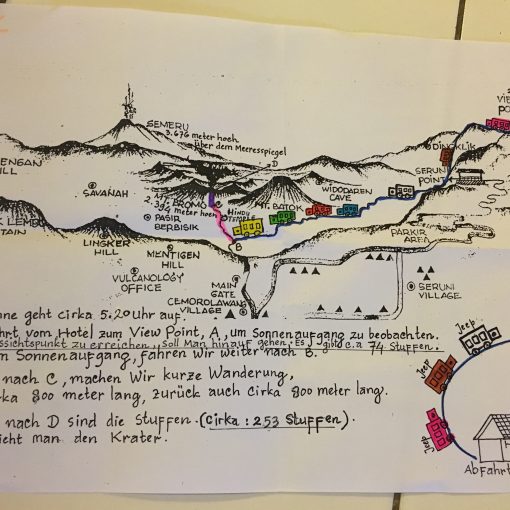 VIE
PO
SEMERU
3.676 meter hoch
über dem Meeresspiegel
DINGKLIK
D
ENGAN
ILL
SERUNI
POINT
WIDODAREN
CAVE
SAVANAH
MT. BATOK
C
MT. BROMO
2.392 meter hoch
HINDU
TEMPLE
PASIR
BERBISIK
K LEMBU
TAIN
PARKIR
AREA
LINGKER
HILL
B
MENTIGEN
HILL
VULCANOLOGY
OFFICE
MAIN
GATE
CEMOROLAWANG
VILLAGE
SERUNI
VILLAGE
nne geht cirka 5.20 uhr auf.
hrt vom Hotel zum View Point, A, um Sonnenaufgang zu beobachten.
ssichtspunkt zu erreichen, soll Man hinauf gehen. Es gibt c.a 74 Stuffen.
m Sonnenaufgang, fahren wir weiter nach B.
nach C, machen Wir kurze Wanderung,
rka 800 meter lang, zurück auch cirka 800 meter lang.
nach D sind die Stuffen. (Cirka : 253 Stuffen)
icht man den Krater.
Jeep
Jeep
Jeep
H
Abfahrt